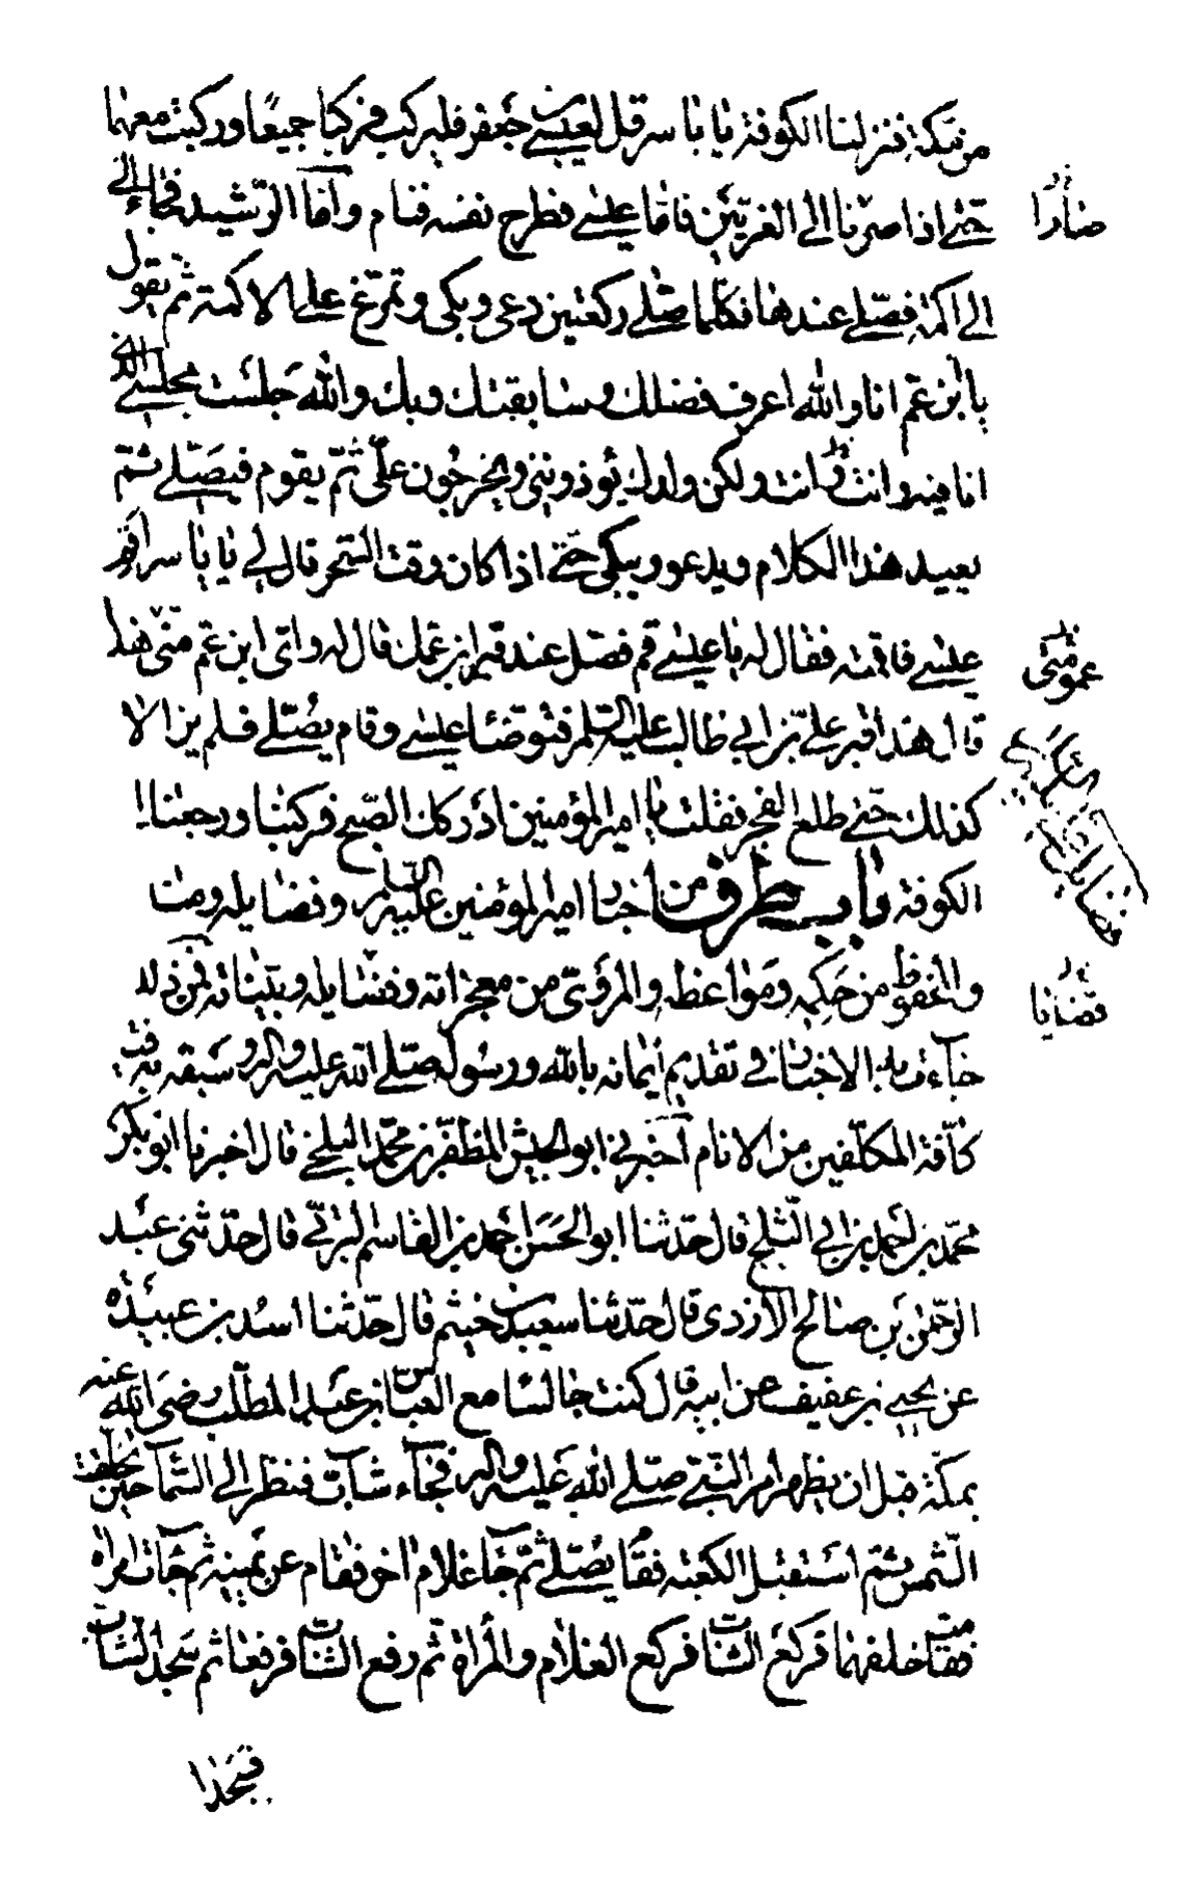 من مكة فنزلنا الكوفة يا ياسر قل لعيسى بن جعفر فليركب فركبا جميعًا وركبت معهما
حتى اذا صرنا الى الغريّين فامّا عيسى فطرح نفسه فنام وامّا الرّشيد فجاء الى
الى اكمة فصلى عندها فكلما صلى ركعتين دعى وبكى وتمرّغ على الاكمة ثم يقول
يا بن عم انا والله اعرف فضلك وسابقتك وبك والله جلست مجلسى الذى
انا فيه وانت انت ولكن ولدك يؤذوننى ويخرجون علىّ ثمّ يقوم فيصلى ثم
يعيد هذا الكلام ويدعو ويبكى حتى اذا كان وقت السّحر قال لى يا ياسر اقم
عيسى فاقمته فقال له يا عيسى قم فصل عند قبر ابن عمك قال له واى ابن عم منى هذا
قال هذا قبر على بن ابى طالب عليه السلم فتوضّأ عيسى وقام يصلى فلم يزالا
كذلك حتى طلع الفجر فقلت يا امير المؤمنين ادركك الصّبح فركبنا ورجعنا الى
الكوفة باب طرف من اخبار امير المؤمنين عليه السلام وفضايله ومناقبه
والمحفوظ من حكمه ومواعظه والمروىّ من معجزاته وقضاياه وبيّناته فمن ذلك
جاءت به الاخبار فى تقديم ايمانه بالله ورسوله صلى الله عليه واله وسبقه به
كافّة المكلّفين من الانام اخبرنى ابو الجيش المظفّر بن محمّد البلخى قال اخبرنا ابو بكر
محمّد بن احمد بن ابى الثلج قال حدّثنا ابو الحسن احمد بن القاسم البرتى قال حدّثنى عبد
الرّحمن بن صالح الازدى قال حدّثنا سعيد بن خيثم قال حدّثنا اسد بن عبيده
عن يحيى بن عفيف عن ابيه قال كنت جالسًا مع العبّاس بن عبد المطّلب رضى الله عنه
بمكّة قبل ان يظهر امر النّبى صلى الله عليه واله فجاء شابّ فنظر الى السّماء حين تحلّقت
الشّمس ثم استقبل الكعبة فقام يصلى ثمّ جاء غلام اخر فقام عن يمينه ثم جاءت امراة
فقامت خلفهما فركع الشاب فركع الغلام والمراة ثم رفع الشاب فرفعا ثم سجد الشاب
فسجدا
صارا
عمومتى
قضايا